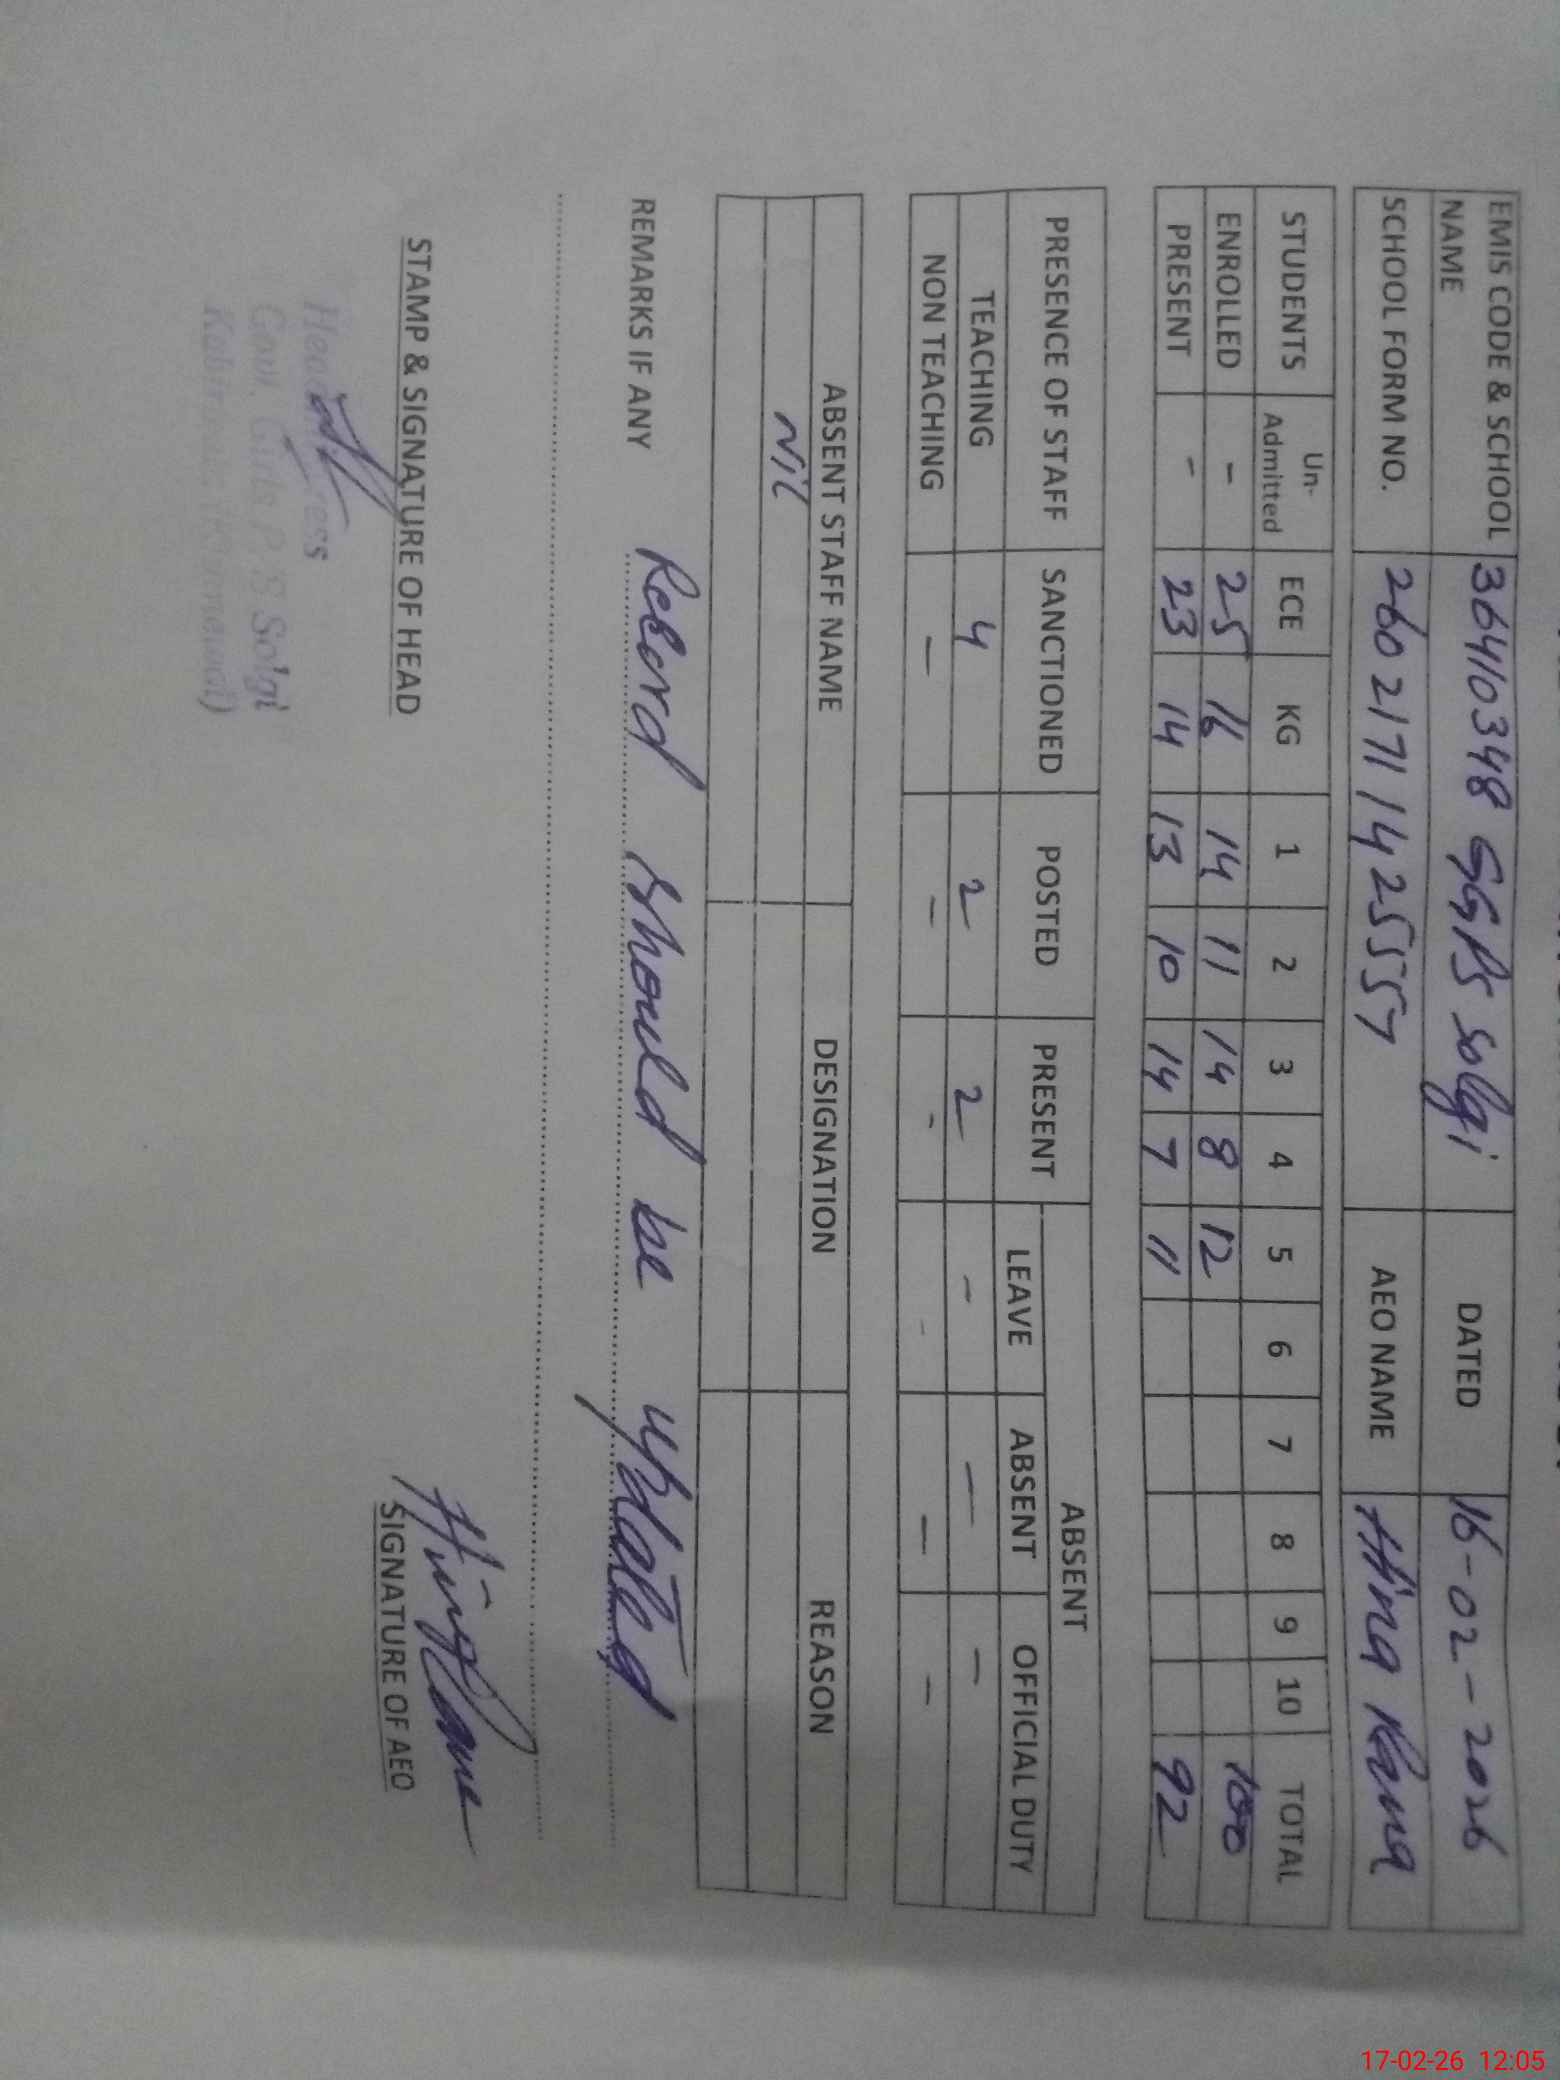 EMIS CODE & SCHOOL NAME 36410348 GGPS Solgi DATED 16-02-2026
SCHOOL FORM NO. 260217114255557 AEO NAME Hina Rana
STUDENTS Un-Admitted ECE KG 1 2 3 4 5 6 7 8 9 10 TOTAL
ENROLLED - 25 16 14 11 14 8 12 100
PRESENT - 23 14 13 10 14 7 11 92
PRESENCE OF STAFF SANCTIONED POSTED PRESENT ABSENT
LEAVE ABSENT OFFICIAL DUTY
TEACHING 4 2 2 - - -
NON TEACHING - - - - - -
ABSENT STAFF NAME DESIGNATION REASON
Nil
REMARKS IF ANY Record should be updated
STAMP & SIGNATURE OF HEAD
SIGNATURE OF AEO
Headmistress
Govt. Girls P/S Solgi
17-02-26 12:05